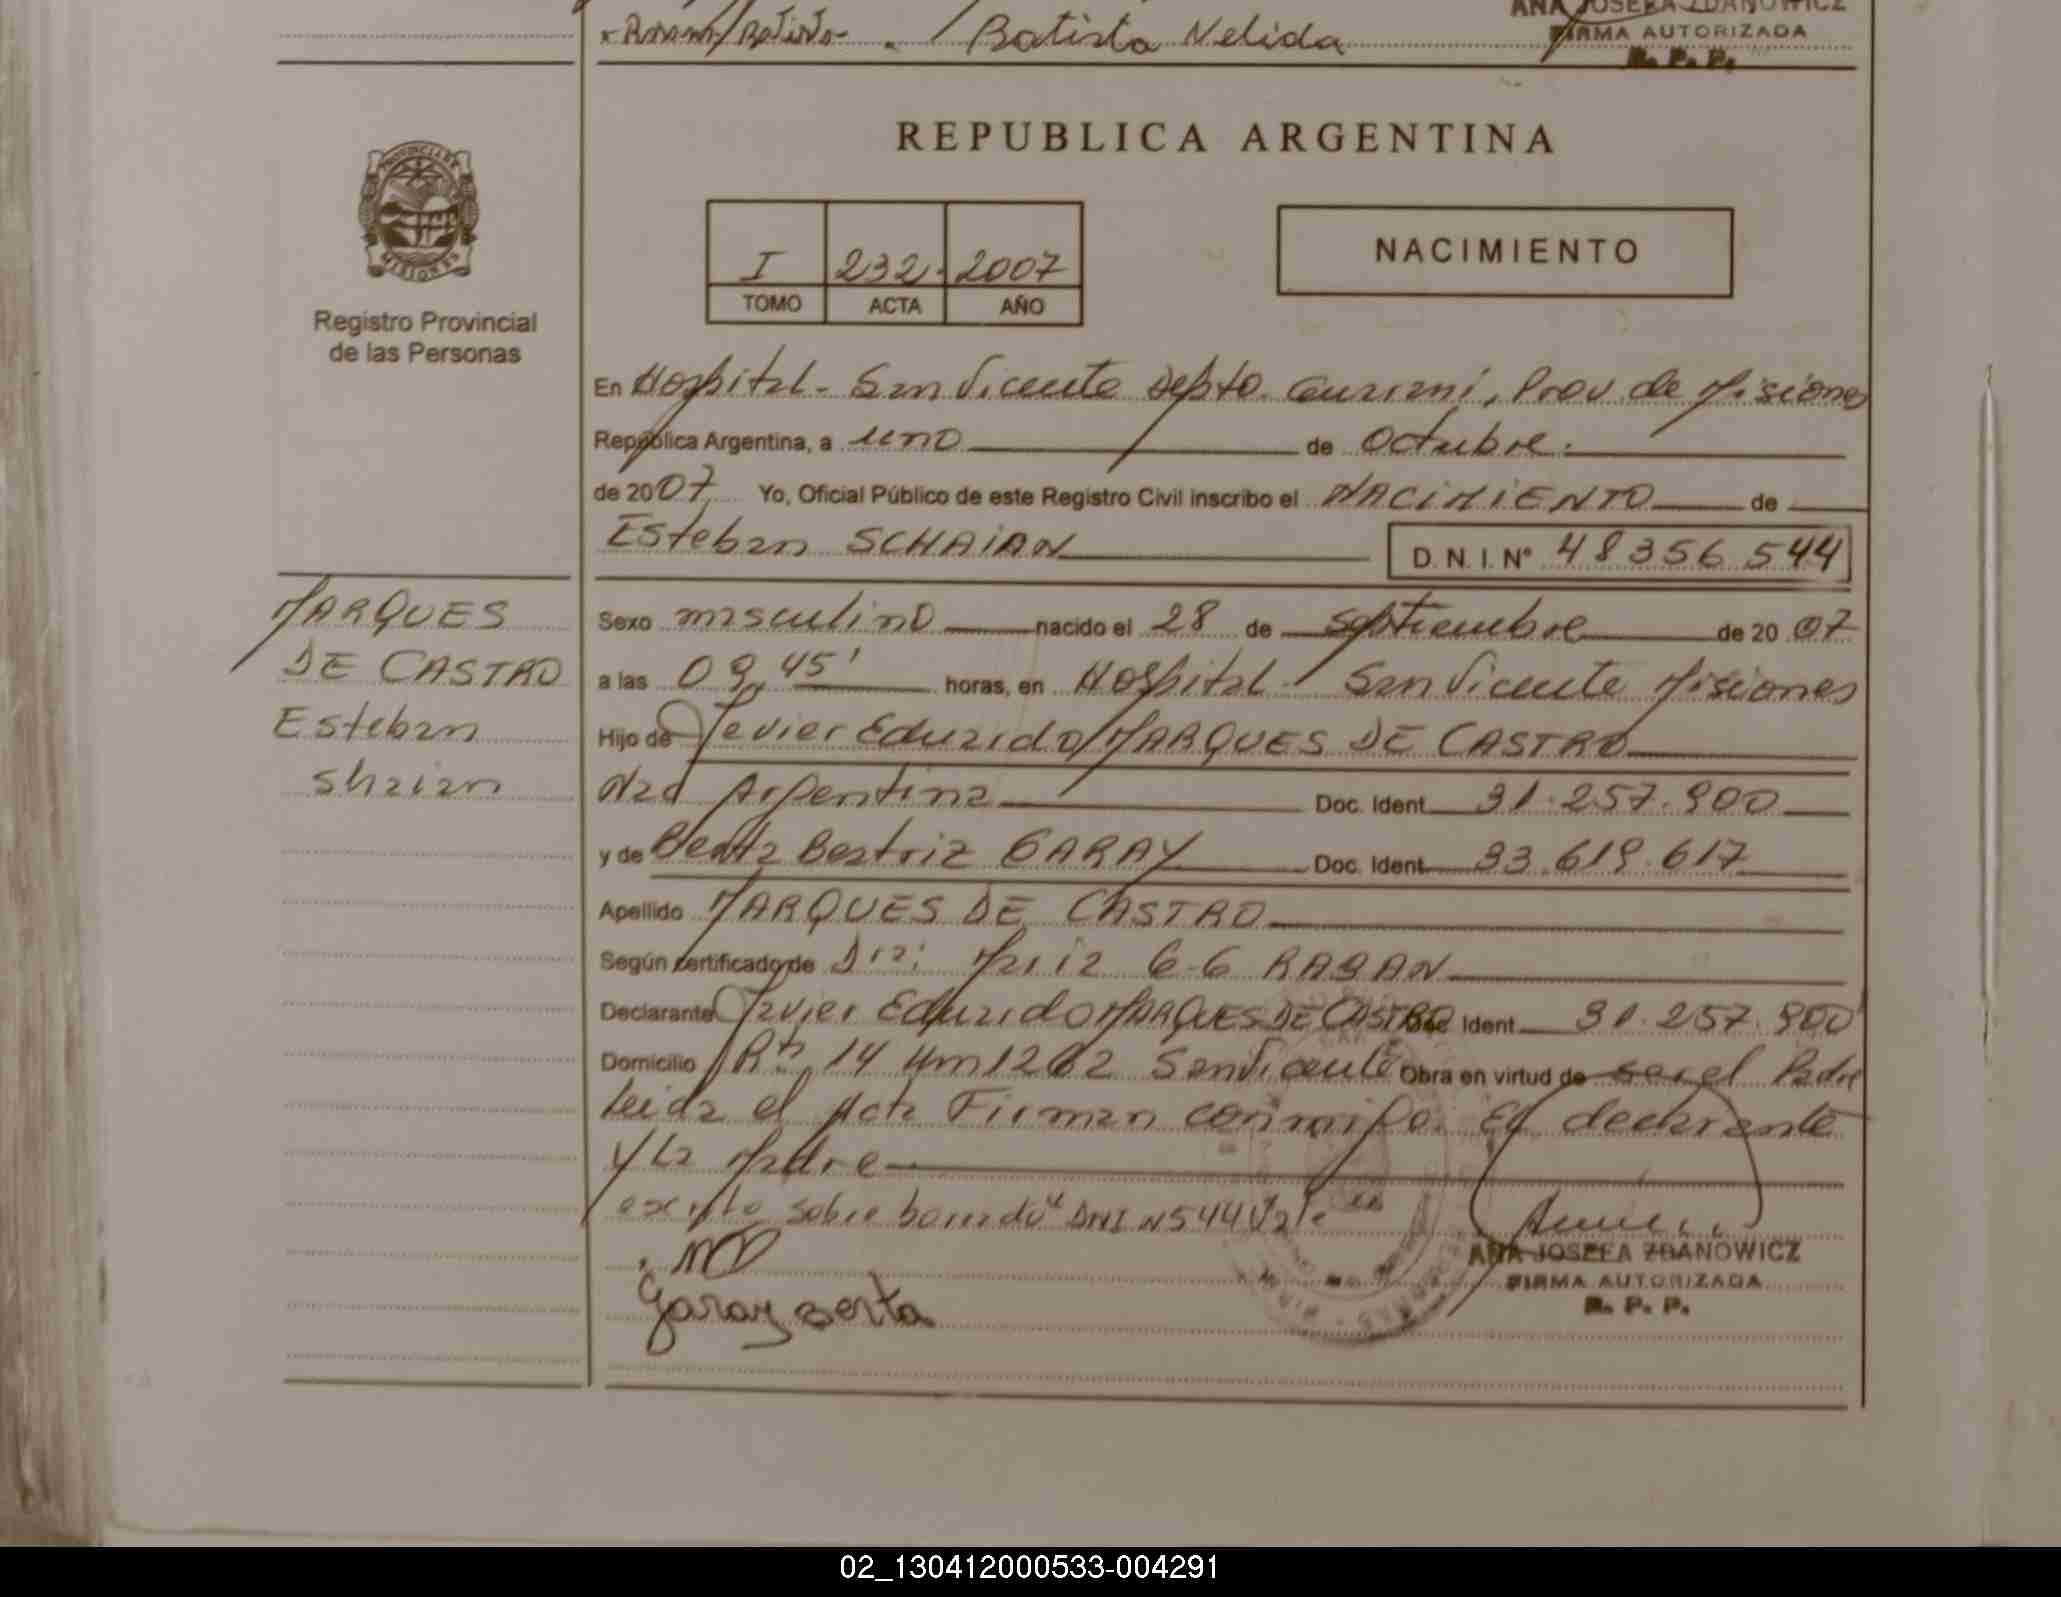 Batista Nelida
ANA JOSEFA ZBANOWICZ
FIRMA AUTORIZADA
R. P. P.
REPUBLICA ARGENTINA
PROVINCIA DE
MISIONES
Registro Provincial
de las Personas
I 232 2007
TOMO ACTA AÑO
NACIMIENTO
En Hospital - San Vicente Depto. Guarani, Prov de Misiones
República Argentina, a uno de Octubre.
de 2007 Yo, Oficial Público de este Registro Civil inscribo el NACIMIENTO de
Esteban SCHAIAN D. N. I. N° 48356544
MARQUES
DE CASTRO
Esteban
Shaian
Sexo masculino nacido el 28 de septiembre de 2007
a las 09,45' horas, en Hospital San Vicente Misiones
Hijo de Javier Eduardo MARQUES DE CASTRO
Nad Argentina Doc. Ident. 31.257.900
y de Berta Beatriz GARAY Doc. Ident. 33.619.617
Apellido MARQUES DE CASTRO
Según certificado de Dra: Maria G.G RAGAN
Declarante Javier Eduardo MARQUES DE CASTRO Doc. Ident. 31.257.900
Domicilio Rta. 14 Km 1262 San Vicente Obra en virtud de ser el Padre
Leida el Acta Firman conmigo. El declarante
y La Madre
escrito sobre borrado" DNI N 544 Vale
Garay Berta
ANA JOSEFA ZBANOWICZ
FIRMA AUTORIZADA
R. P. P.
02_130412000533-004291